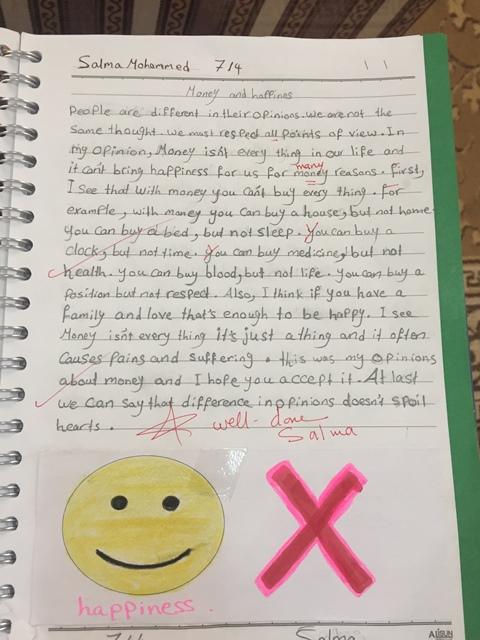 Salma Mohammed 7/4
Money and happines
People are different in their opinions. we are not the
same thought. we must respect all points of view. In
my opinion, Money isn't every thing in our life and
many
it can't bring happiness for us for money reasons. First,
I see that with money you can't buy every thing. For
example, with money you can buy a house, but not home.
you can buy a bed, but not sleep. You can buy a
clock, but not time. You can buy medicine, but not
health. you can buy blood, but not life. You can buy a
Position but not respect. Also, I think if you have a
family and love that's enough to be happy. I see
Money isn't every thing it's just a thing and it often
causes pains and suffering. this was my opinions
about money and I hope you accept it. At last
we can say that difference in opinions doesn't spoil
hearts.
well-done
Salma
happiness.
7/4 Salma